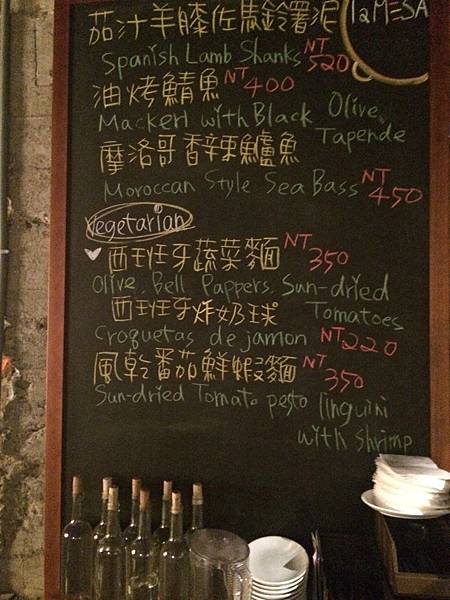 茄汁羊膝佐馬鈴薯泥
laMESA
Spanish Lamb Shanks NT 520
油烤鯖魚 NT 400
Mackerl with Black Olive
Tapende
摩洛哥香辣鱸魚
Moroccan Style Sea Bass NT 450
Vegetarian
西班牙蔬菜麵 NT 350
Olive, Bell Pappers, Sun-dried
西班牙炸奶球 Tomatoes
Croquetas de jamon NT 220
風乾番茄鮮蝦麵 NT 350
Sun-dried Tomato pesto linguini
with shrimp